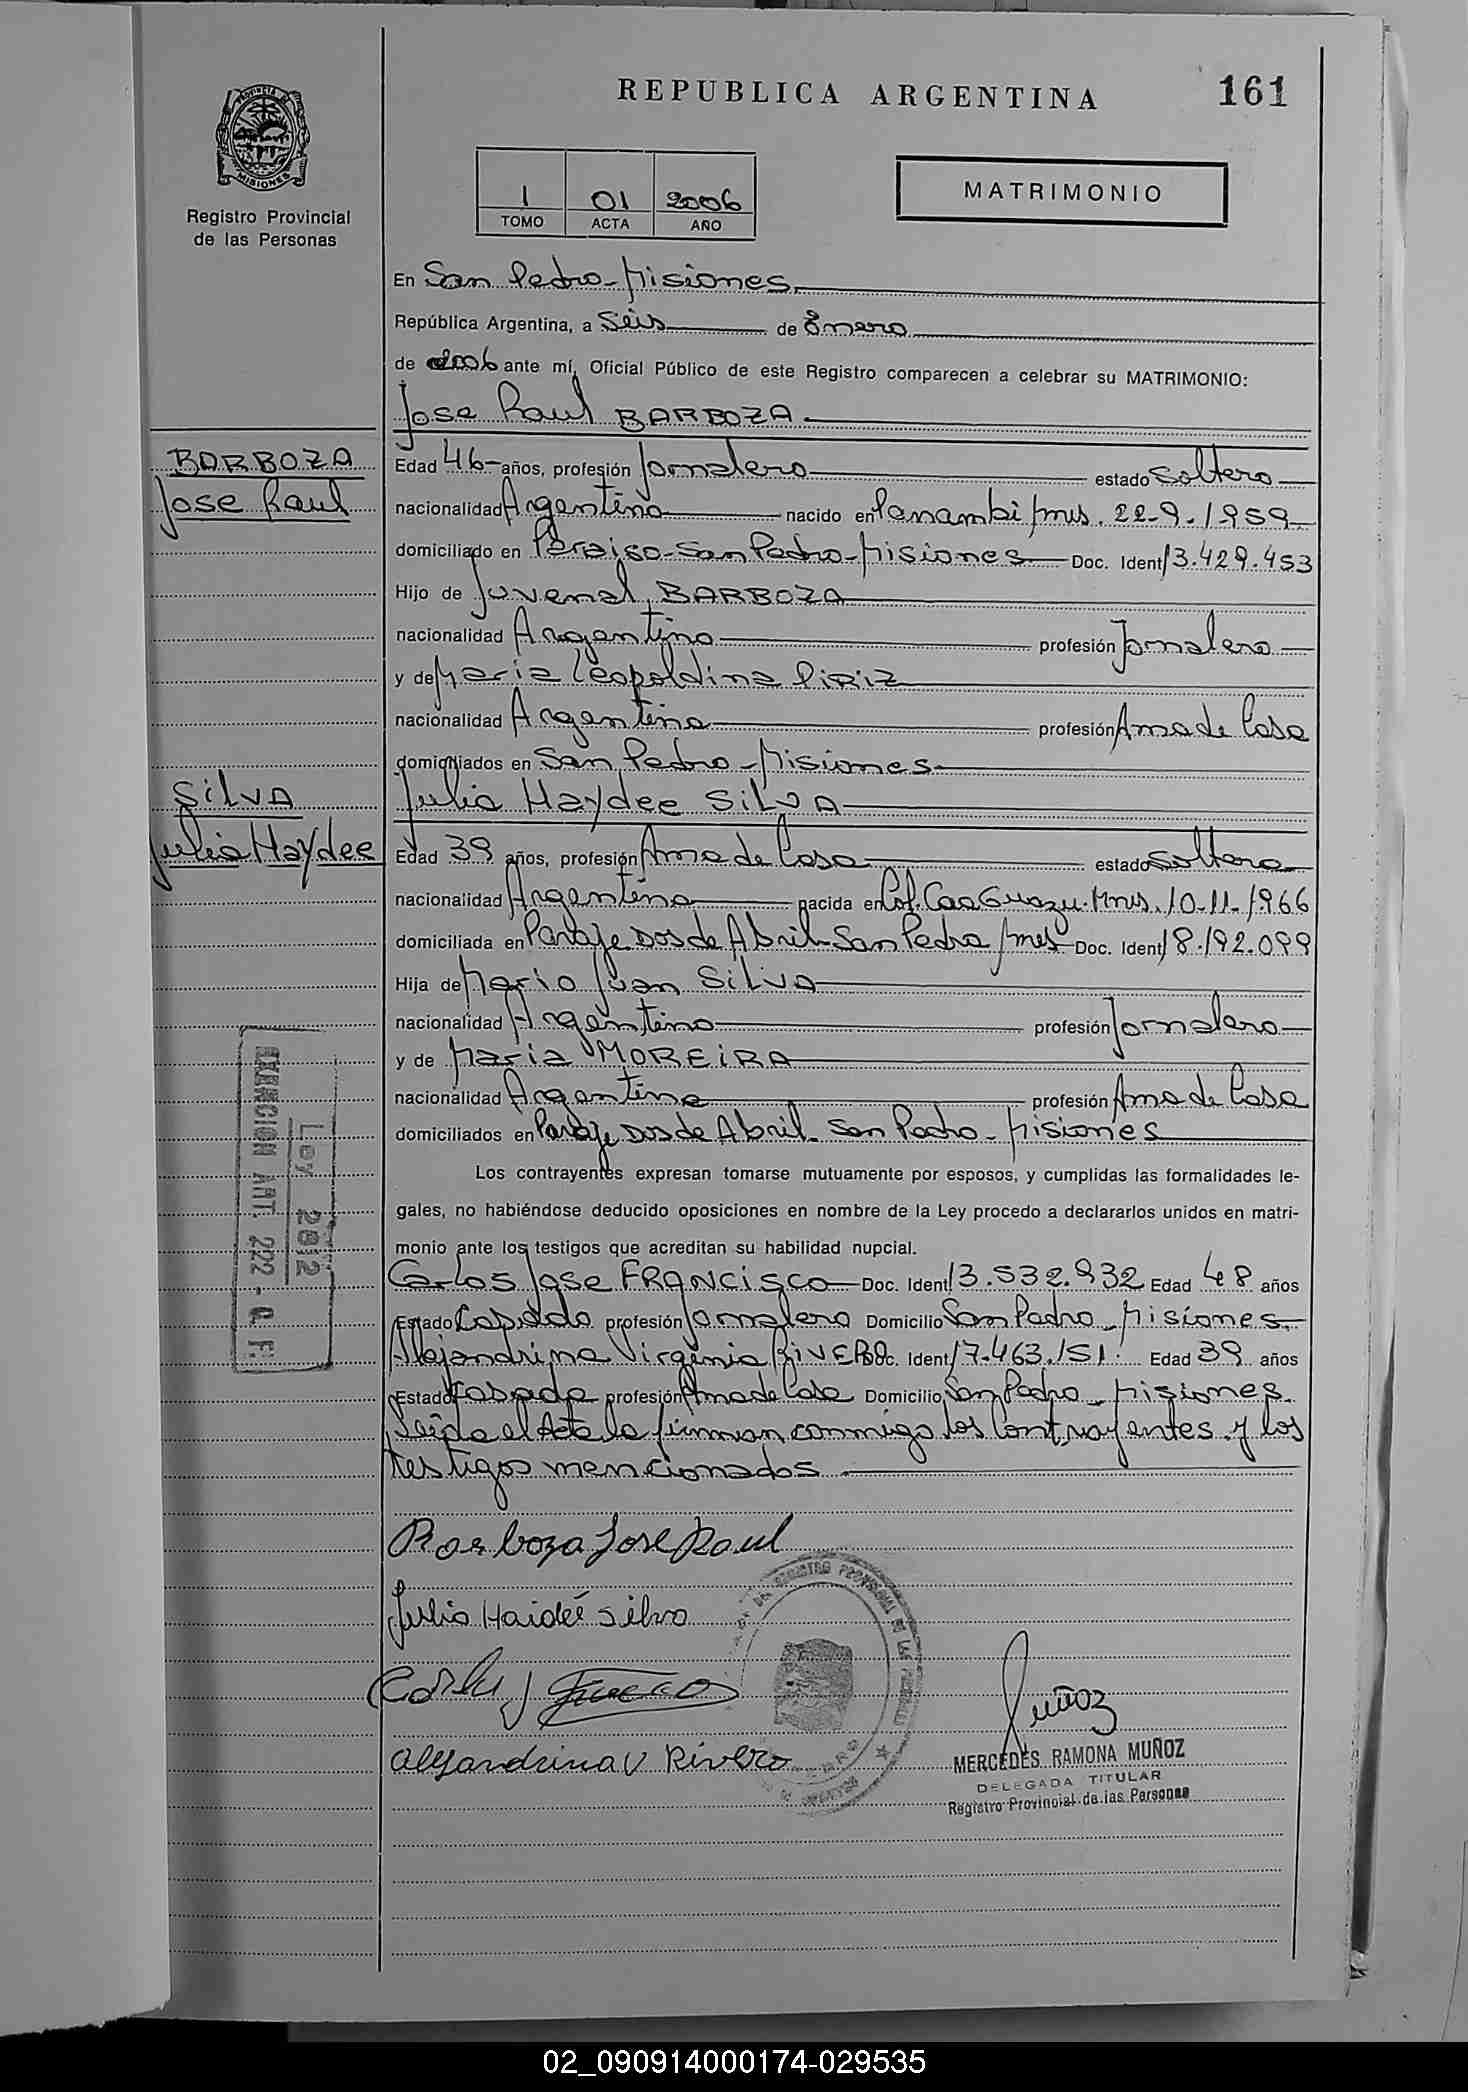 REPUBLICA ARGENTINA
161
PROVINCIA DE
MISIONES
Registro Provincial
de las Personas
1 01 2006
TOMO ACTA AÑO
MATRIMONIO
En San Pedro-Misiones
República Argentina, a Seis de Enero
de 2006 ante mí, Oficial Público de este Registro comparecen a celebrar su MATRIMONIO:
Jose Raul BARBOZA
BARBOZA
Jose Raul
Edad 46 años, profesión Jornalero estado Soltero
nacionalidad Argentino nacido en Panambi Mns. 22-9-1959
domiciliado en Peraiso-San Pedro-Misiones Doc. Ident 13.429.453
Hijo de Juvenal BARBOZA
nacionalidad Argentino profesión Jornalero
y de Maria Leopoldina PIRIZ
nacionalidad Argentina profesión Ama de Casa
domiciliados en San Pedro-Misiones
SILVA
Julia Haydee
Julia Haydee SILVA
Edad 39 años, profesión Ama de Casa estado Soltera
nacionalidad Argentina nacida en Col. CaaGuazu. Mns. 10-11-1966
domiciliada en Paraje Dos de Abril-San Pedro Mns Doc. Ident 18.192.099
Hija de Mario Juan SILVA
nacionalidad Argentino profesión Jornalero
y de Maria MOREIRA
nacionalidad Argentina profesión Ama de Casa
domiciliados en Paraje Dos de Abril-San Pedro-Misiones
Los contrayentes expresan tomarse mutuamente por esposos, y cumplidas las formalidades le-
gales, no habiéndose deducido oposiciones en nombre de la Ley procedo a declararlos unidos en matri-
monio ante los testigos que acreditan su habilidad nupcial.
Ley 2812
EXENCION ART. 222 - C. F.
Carlos Jose FRANCISCO Doc. Ident 13.532.932 Edad 48 años
Estado Casado profesión Jornalero Domicilio San Pedro-Misiones
Alejandrina Virginia RIVERO Doc. Ident 17.463.151 Edad 39 años
Estado Casada profesión Ama de Casa Domicilio San Pedro-Misiones
Leida el Acta la firman conmigo los Contrayentes y los
testigos mencionados
Barboza Jose Raul
Julia Haideé Silva
Alejandrina V Rivero
REGISTRO PROVINCIAL DE LAS PERSONAS
Muñoz
MERCEDES RAMONA MUÑOZ
DELEGADA TITULAR
Registro Provincial de las Personas
02_090914000174-029535